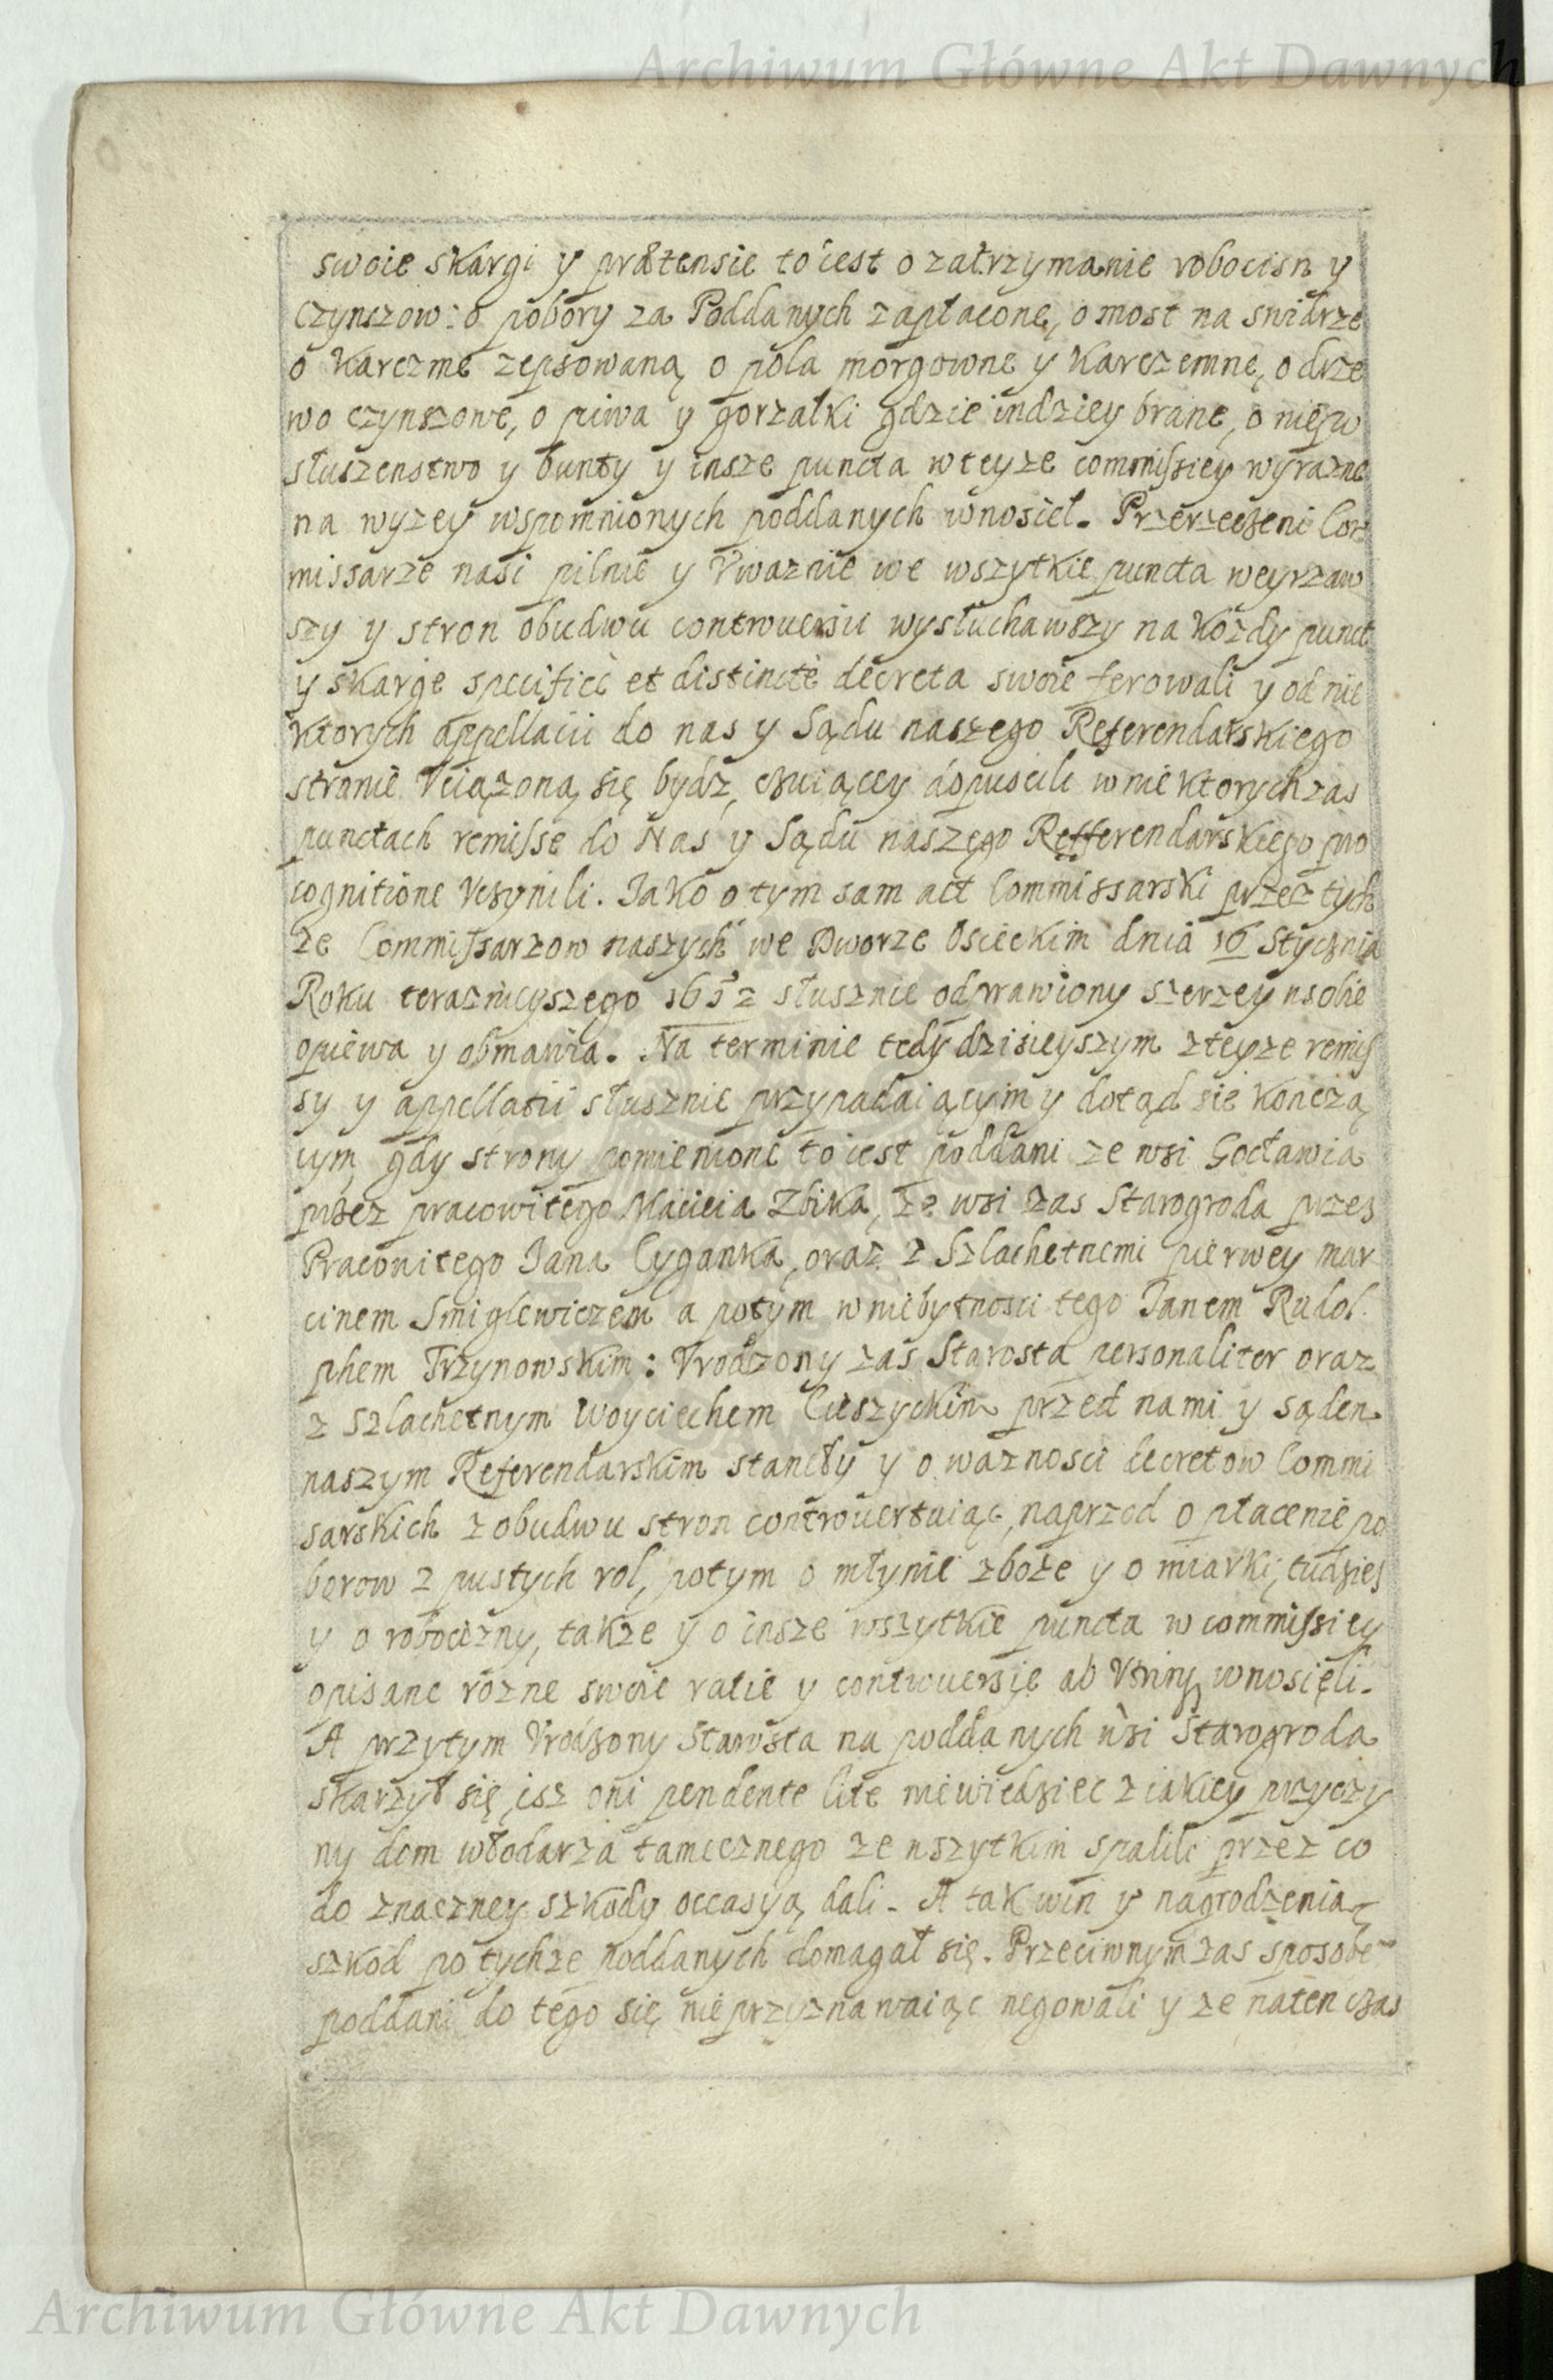 Archiwum Główne Akt Dawnych
swoie skargi y prætensie to iest o zatrzymanie robocisn y
Czynszow: o pobory za Poddanych zapłacone, o most na swidrze
o Karczme zepsowaną o pola morgowne y Karczemne, o drze
wo czynszowe, o piwa y gorzałki gdzie indziey brane, o niepo
słuszenstwo y bunty y insze puncta w teyze commissiey wyrazne
na wyzey wspomnionych poddanych wnosieł. Przerzeczeni Com
missarze nasi pilnie y Vwaznie we wszytkie puncta weyrzaw
szy y stron obudwu controuersii wysłuchawszy na kozdy punct
y skarge specificè et distinctè decreta swoie ferowali y od nie
ktorych appellacii do nas y Sądu naszego Referendarskiego
stronie Vciązoną się bydz czuiącey dopuscili w niektorych zas
punctach remisse do Nas y Sądu naszego Refferendarskiego pro
cognitione Vczynili. Jako o tym sam act Commissarski przez tych
ze Commissarzow naszych we Dworze Osieckim dnia 16 Stycznia
Roku teraznieyszego 1652 słusznie odprawiony szerzey w sobie
opiewa y obmawia. Na terminie tedy dzisieyszym z teyze remis
sy y appellatii słusznie przypadaiącym y dotąd sie kończą
cym, gdy strony pomienione to iest poddani ze wsi Gocławia
przez pracowitego Macieia Zbika, ze wsi zas Starogroda przes
Pracowitego Jana Cyganka, oraz z Szlachetnemi pierwey Mar
cinem Smiglewiczem a potym w niebytnosci tego Janem Rudol
phem Trzynowskim: Vrodzony zas Starosta personaliter oraz
z Szlachetnym Woyciechem Cieszyckim przed nami y sądem
naszym Referendarskim staneły y o waznosci decretow Commi
sarskich z obudwu stron controuertuiąc, naprzod o płacenie po
borow z pustych rol, potym o młynie zboze y o miarki, tudzies
y o robocizny, takze y o insze wszytkie puncta w commissiey
opisane rozne swoie ratie y controuersię ab Vtrinq wnosięli.
A przytym Vrodzony Starosta na poddanych wsi Starogroda
skarzył się, isz oni pendente lite niewiedziec z iakiey przyczy
ny dom włodarza tamecznego ze wszytkim spalili przez co
do znaczney szkody occasyą dali. A tak win y nagrodzenia
szkod po tychze poddanych domagał się. Przeciwnym zas sposobe
poddani do tego się nieprzyznawaiąc negowali y ze naten czas
Archiwum Główne Akt Dawnych